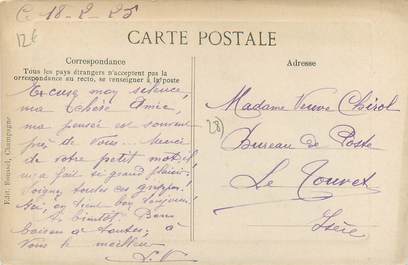 C. 18-2-25
12€
CARTE POSTALE
Correspondance
Tous les pays étrangers n'acceptent pas la
correspondance au recto, se renseigner à la poste
Adresse
Excusez mon silence,
ma chère Amie,
ma pensée est souvent
près de vous... Merci
de votre petit mot qui
m'a fait si grand plaisir.
Soignez toutes ces grippes!
Ici, on tient bon toujours!
A bientôt. Bons
baisers à toutes; à
Vous le meilleur
Madame Veuve Chirol
28
Bureau de Poste
Le Touvet
Isère
Edit. Roussel, Champagne